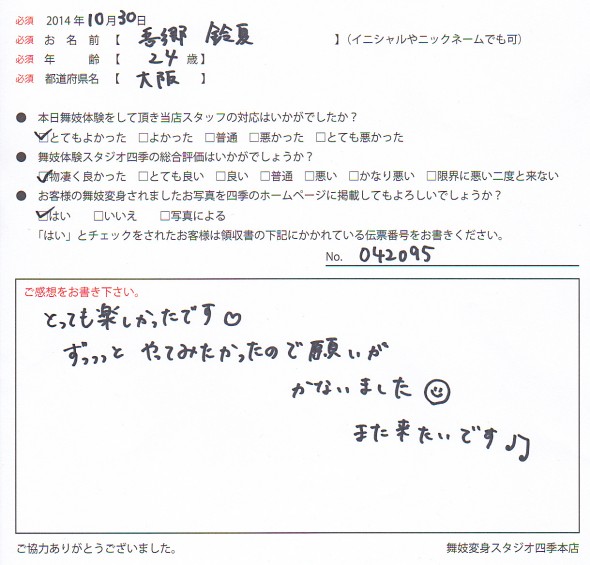 必須 2014年10月30日
必須 お名前【 吾郷 鈴夏 】(イニシャルやニックネームでも可)
必須 年齢【 24 歳】
必須 都道府県名【 大阪 】
● 本日舞妓体験をして頂き当店スタッフの対応はいかがでしたか?
☑とてもよかった □よかった □普通 □悪かった □とても悪かった
● 舞妓体験スタジオ四季の総合評価はいかがでしょうか?
☑物凄く良かった □とても良い □良い □普通 □悪い □かなり悪い □限界に悪い二度と来ない
● お客様の舞妓変身されましたお写真を四季のホームページに掲載してもよろしいでしょうか?
☑はい □いいえ □写真による
「はい」とチェックをされたお客様は領収書の下記にかかれている伝票番号をお書きください。
No. 042095
ご感想をお書き下さい。
とっても楽しかったです♡
ずっっっと やってみたかったので願いが
かないました☺
また来たいです♫
ご協力ありがとうございました。 舞妓変身スタジオ四季本店